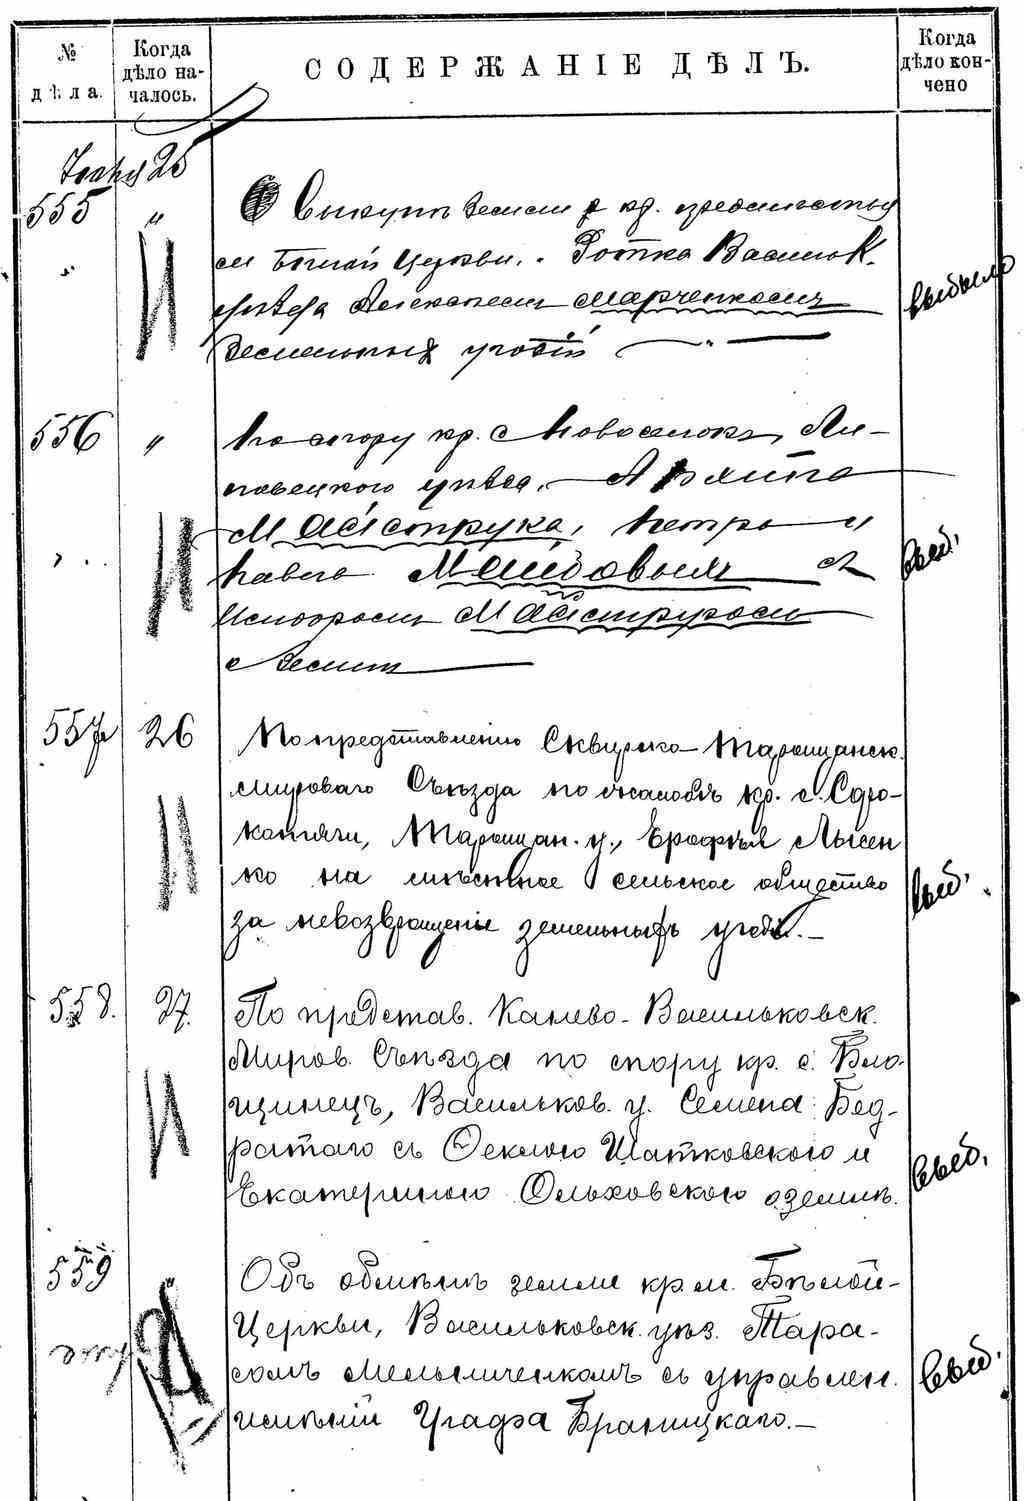 № дѣла.
Когда дѣло началось.
СОДЕРЖАНІЕ ДѢЛЪ.
Когда дѣло кончено
25
555 „
О выкупѣ земли кр. предмѣстья
м. Бѣлой Церкви, Васильк.
уѣзда Алексѣем Марченком
земельных угодій —
выбыло
И
556 „
По спору кр. с. Новоселок, Ли-
повецкого уѣзда, Архипа
Майструка, Петра и
Павла с
Майструком
о земле
выб.
И
557 26
По представленію Сквирско-Таращанск.
мироваго Съѣзда по жалобѣ кр. с. Соро-
котяги, Таращан. у., Ерофѣя Лысен
ко на мѣстное сельское общество
за невозвращеніе земельныхъ угодій. —
выб.
И
558. 27.
По представ. Канево-Васильковск.
Миров. Съѣзда по спору кр. с. Бло-
щинецъ, Васильков. у. Семена Бед-
ратаго съ Феклою Шатковскою и
Екатериною Ольховскою о землѣ.
выб.
И
559 „
Объ обмѣнѣ земли кр. м. Бѣлой-
Церкви, Васильковск. уѣз. Тара-
сомъ Мельниченкомъ съ управлен.
имѣній Графа Браницкаго. —
выб.